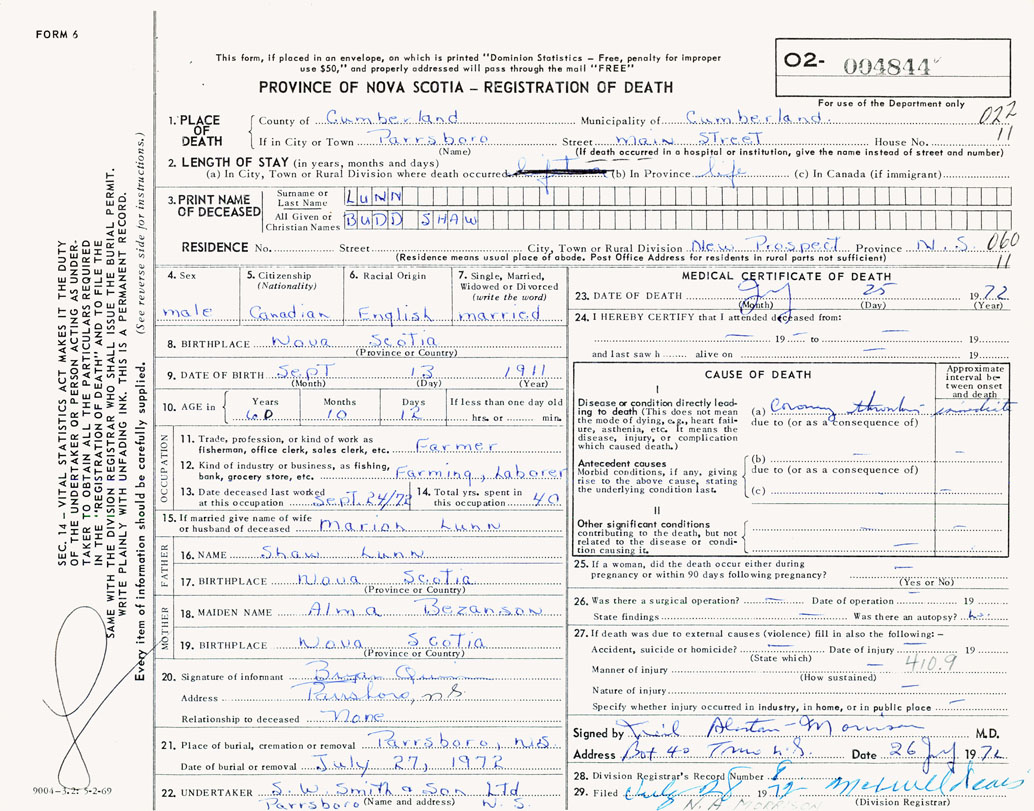 FORM 6
This form, if placed in an envelope, on which is printed "Dominion Statistics – Free, penalty for improper
use $50," and properly addressed will pass through the mail "FREE"
PROVINCE OF NOVA SCOTIA – REGISTRATION OF DEATH
O2- 004844
For use of the Department only
022
11
1. PLACE OF DEATH
County of Cumberland Municipality of Cumberland.
If in City or Town Parrsboro Street Main Street House No.
(Name) (If death occurred in a hospital or institution, give the name instead of street and number)
2. LENGTH OF STAY (in years, months and days)
(a) In City, Town or Rural Division where death occurred (b) In Province life (c) In Canada (if immigrant)
3. PRINT NAME OF DECEASED
Surname or Last Name LUNN
All Given or Christian Names BUDD SHAW
RESIDENCE No. Street City, Town or Rural Division New Prospect Province N.S. 060
(Residence means usual place of abode. Post Office Address for residents in rural parts not sufficient) 11
4. Sex
male
5. Citizenship (Nationality)
Canadian
6. Racial Origin
English
7. Single, Married, Widowed or Divorced (write the word)
married
8. BIRTHPLACE Nova Scotia
(Province or Country)
9. DATE OF BIRTH Sept 13 1911
(Month) (Day) (Year)
10. AGE in Years Months Days If less than one day old
60 10 12 hrs. or min.
OCCUPATION
11. Trade, profession, or kind of work as
fisherman, office clerk, sales clerk, etc. Farmer
12. Kind of industry or business, as fishing,
bank, grocery store, etc. Farming, Laborer
13. Date deceased last worked
at this occupation Sept. 24/72
14. Total yrs. spent in
this occupation 40
15. If married give name of wife
or husband of deceased Marion Lunn
FATHER
16. NAME Shaw Lunn
17. BIRTHPLACE Nova Scotia
(Province or Country)
MOTHER
18. MAIDEN NAME Alma Bezanson
19. BIRTHPLACE Nova Scotia
(Province or Country)
20. Signature of informant
Address Parrsboro, N.S.
Relationship to deceased None
21. Place of burial, cremation or removal Parrsboro, N.S.
Date of burial or removal July 27, 1972
22. UNDERTAKER S. W. Smith & Son Ltd
Parrsboro (Name and address) N. S.
MEDICAL CERTIFICATE OF DEATH
23. DATE OF DEATH 25 1972
(Month) (Day) (Year)
24. I HEREBY CERTIFY that I attended deceased from:
— 19 — to — 19
and last saw h alive on — 19
CAUSE OF DEATH
Approximate interval between onset and death
I
Disease or condition directly leading to death (This does not mean the mode of dying, e.g., heart failure, asthenia, etc. It means the disease, injury, or complication which caused death.)
(a) Coronary thrombosis immediate
due to (or as a consequence of)
Antecedent causes
Morbid conditions, if any, giving rise to the above cause, stating the underlying condition last.
(b) —
due to (or as a consequence of)
(c) —
II
Other significant conditions
contributing to the death, but not related to the disease or condition causing it.
25. If a woman, did the death occur either during
pregnancy or within 90 days following pregnancy? —
(Yes or No)
26. Was there a surgical operation? — Date of operation — 19
State findings — Was there an autopsy? no
27. If death was due to external causes (violence) fill in also the following: –
Accident, suicide or homicide? — Date of injury — 19
(State which)
Manner of injury — 410.9
(How sustained)
Nature of injury —
Specify whether injury occurred in industry, in home, or in public place —
Signed by Morrison M.D.
Address Box 40 Truro N.S. Date 26 1972
28. Division Registrar's Record Number 8
29. Filed July 28 1972
(Division Registrar)
N. A. MORRISON
SEC. 14 – VITAL STATISTICS ACT MAKES IT THE DUTY
OF THE UNDERTAKER OR PERSON ACTING AS UNDER-
TAKER TO OBTAIN ALL THE PARTICULARS REQUIRED
IN THE "REGISTRATION OF DEATH" AND TO FILE THE
SAME WITH THE DIVISION REGISTRAR WHO SHALL ISSUE THE BURIAL PERMIT.
WRITE PLAINLY WITH UNFADING INK. THIS IS A PERMANENT RECORD.
Every item of information should be carefully supplied. (See reverse side for instructions.)